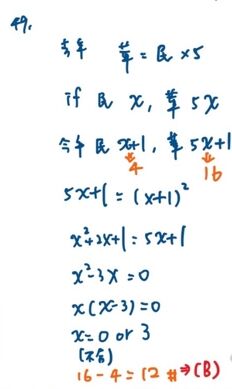 49.
去年 華 = 民 × 5
if 民 x, 華 5x
今年 民 x+1, 華 5x+1
4 16
5x+1 = (x+1)²
x²+2x+1 = 5x+1
x²-3x = 0
x(x-3) = 0
x = 0 or 3
(不合)
16 - 4 = 12 # ⇒ (B)